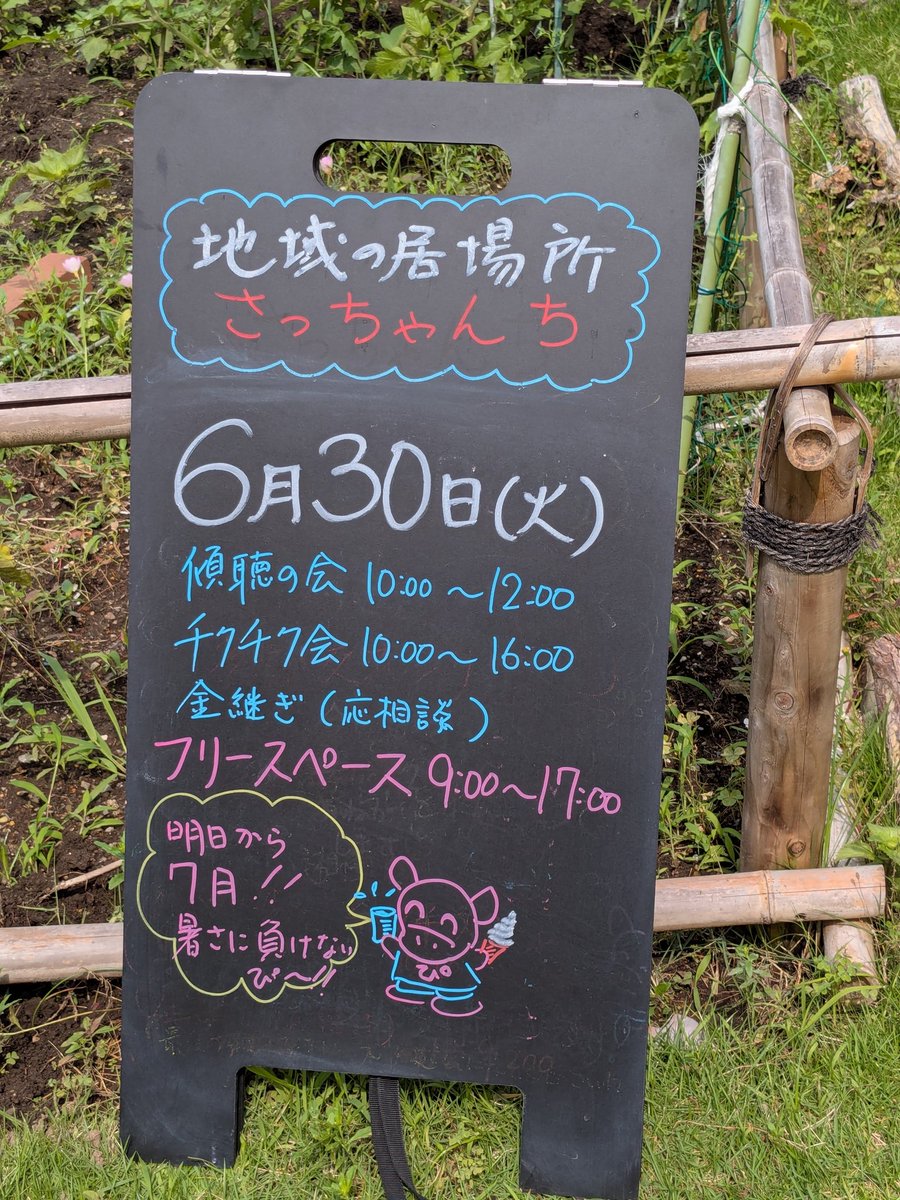 地域の居場所
さっちゃんち
6月30日(火)
傾聴の会 10:00～12:00
チクチク会 10:00～16:00
金継ぎ(応相談)
フリースペース 9:00～17:00
明日から
7月!!
暑さに負けない
ぴ～!!
ぴ